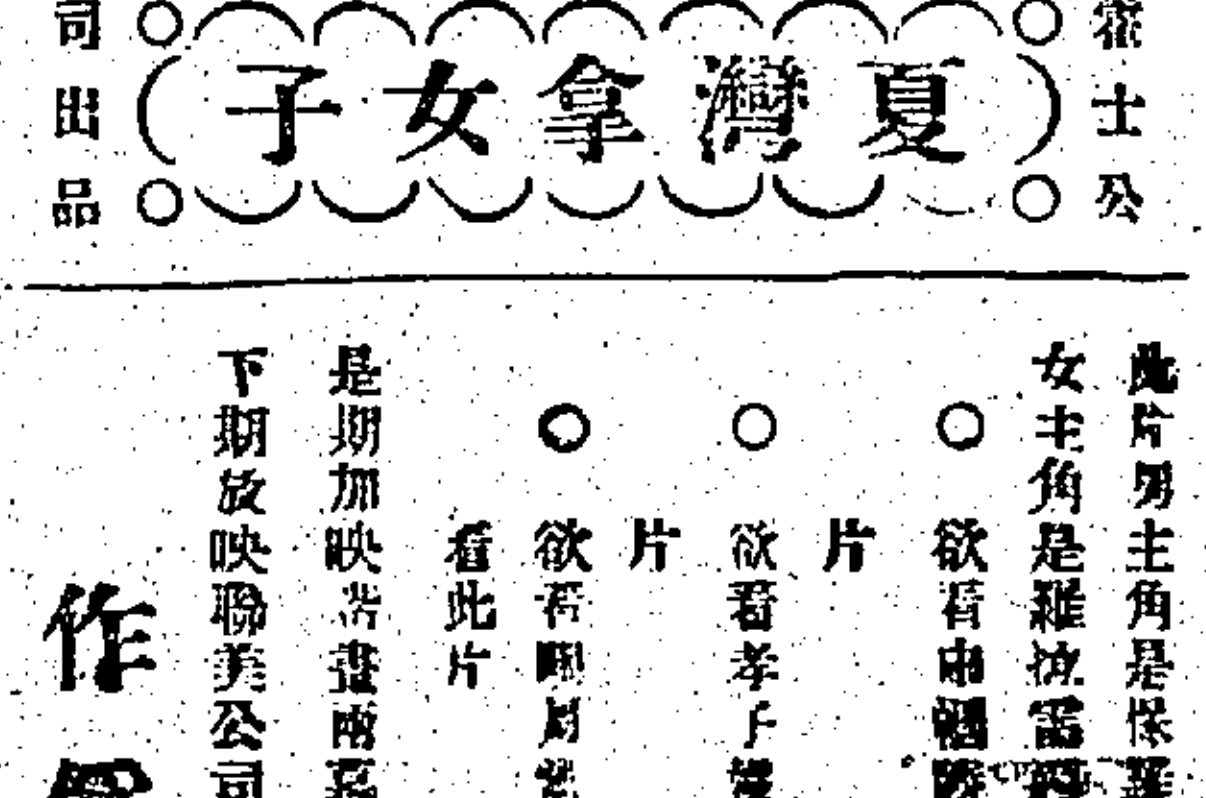 霍士公
夏灣拿女子
司出品
此片男主角是保羅
女主角是羅
○欲看
片
○欲看孝子
片
○欲看
看此片
是期加映滑畫兩
下期放映聯美公司
作